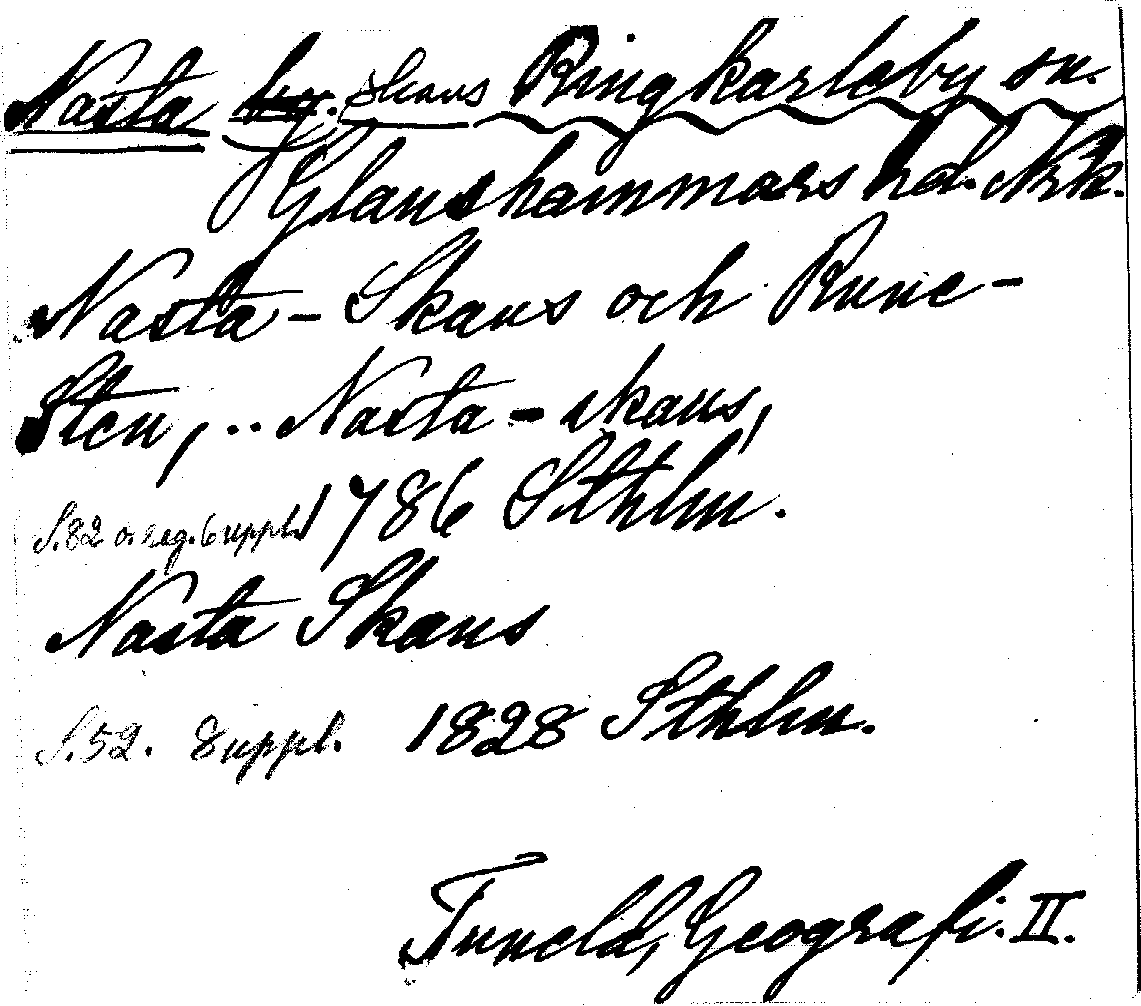 Nasta by. skans Ringkarleby sn.
Glanshammars hd. Nrk.
Nasta - Skans och Rune-
Sten, .. Nasta - skans,
S. 82 o. reg. Suppl. 1786 Sthlm.
Nasta Skans
S. 52. Suppl. 1828 Sthlm.
Tuneld, Geografi. II.